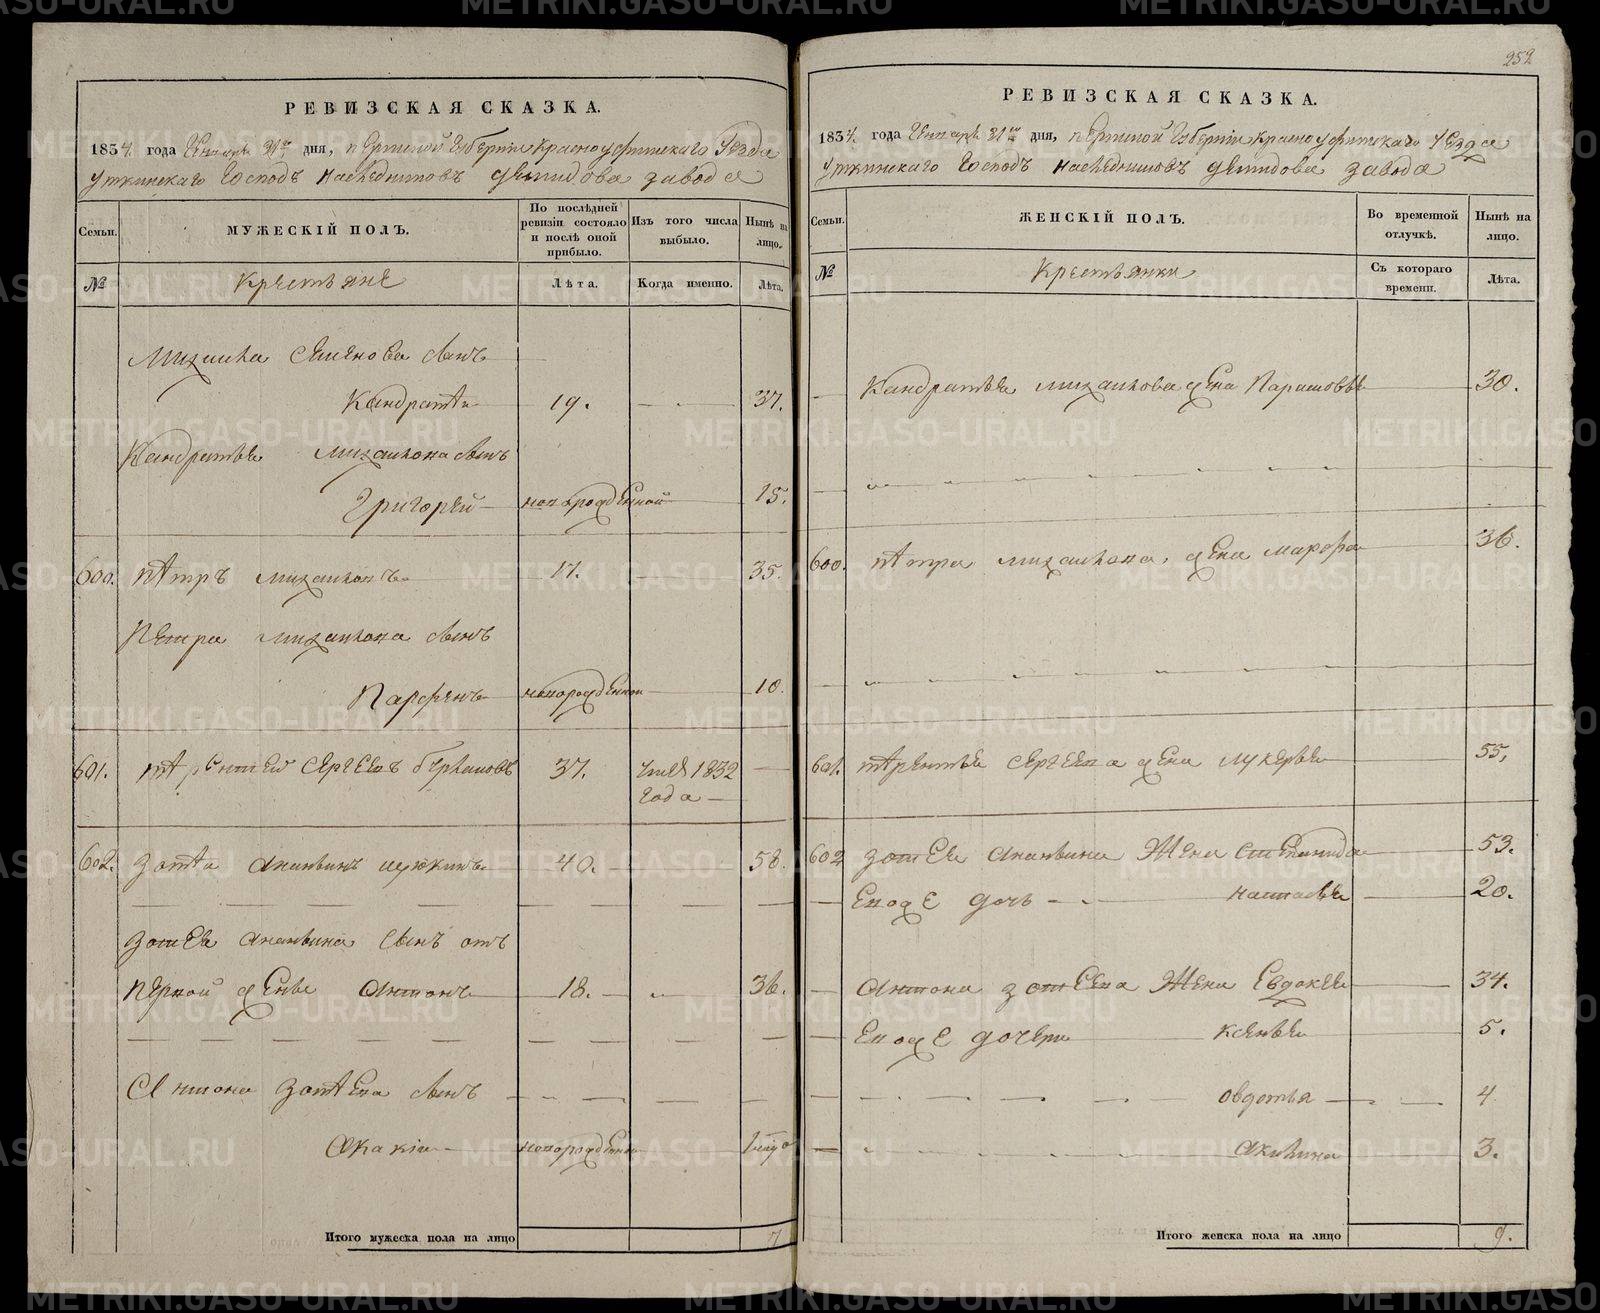 252
РЕВИЗСКАЯ СКАЗКА.
1834. года Генваря 31го дня, Пермской Губернии Красноуфимского Уезда
Уткинскаго Господъ Наследниковъ Демидова завода
Семьи.
МУЖЕСКІЙ ПОЛЪ.
По послѣдней ревизіи состояло и послѣ оной прибыло.
Изъ того числа выбыло.
Нынѣ на лицо.
№
Крестьяне
Лѣта.
Когда именно.
Лѣта.
Михаила Семенова сынъ
Кандратѣй 19. 37.
Кандратья Михаилова сынъ
Григорей новорожденной 15.
600. Пѣтръ Михаиловъ 17. 35.
Петра Михаилова сынъ
Парфенъ новорожденной 10.
601. Терентей Сергеевъ 37. 1832
года
602. Зотѣй Ананьинъ 40. 58.
Зотея Ананьина сынъ отъ
первой жены Антонъ 18. 36.
Антона Зотѣева сынъ
Акакій новорожденной
Итого мужеска пола на лицо 7
РЕВИЗСКАЯ СКАЗКА.
1834. года Генваря 31го дня, Пермской Губерніи Красноуфимскаго Уезда
Уткинскаго Господъ Наследниковъ Демидова завода
Семьи.
ЖЕНСКІЙ ПОЛЪ.
Во временной отлучкѣ.
Нынѣ на лицо.
№
Крестьянки
Съ котораго времени.
Лѣта.
Кандратья Михаилова жена Парасковья 30.
600. Пѣтра Михаилова жена Марфа 36.
601. Терентья Сергеева жена Лукерья 55.
602 Зотея Ананьина Жена Степанида 53.
Евоже дочь Настасья 20.
Антона Зотеева Жена Евдокея 34.
Евоже дочери Ксенья 5.
Овдотья 4
Акилина 3.
Итого женска пола на лицо 9.
METRIKI.GASO-URAL.RU